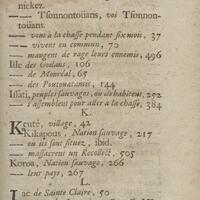 nickez.
—— Tsonnontoüans, voi Tsonnon-
toüans.
—— vont à la chasse pendant six mois, 37
—— vivent en commun, 70
—— mangent de rage leurs ennemis, 496
Isle des Goilans, 106
—— de Monréal, 65
—— des Poutouatamis, 144
Issati, peuples sauvages, où ils habitent, 292
—— s'assemblent pour aller à la chasse, 384
K.
Keuté, village, 42
Kikapous, Nation sauvage, 217
—— où ils sont situez, ibid.
—— massacrent un Recollect, 505
Koroa, Nation sauvage, 266
—— leur païs, 267
L.
Lac de Sainte Claire, 50